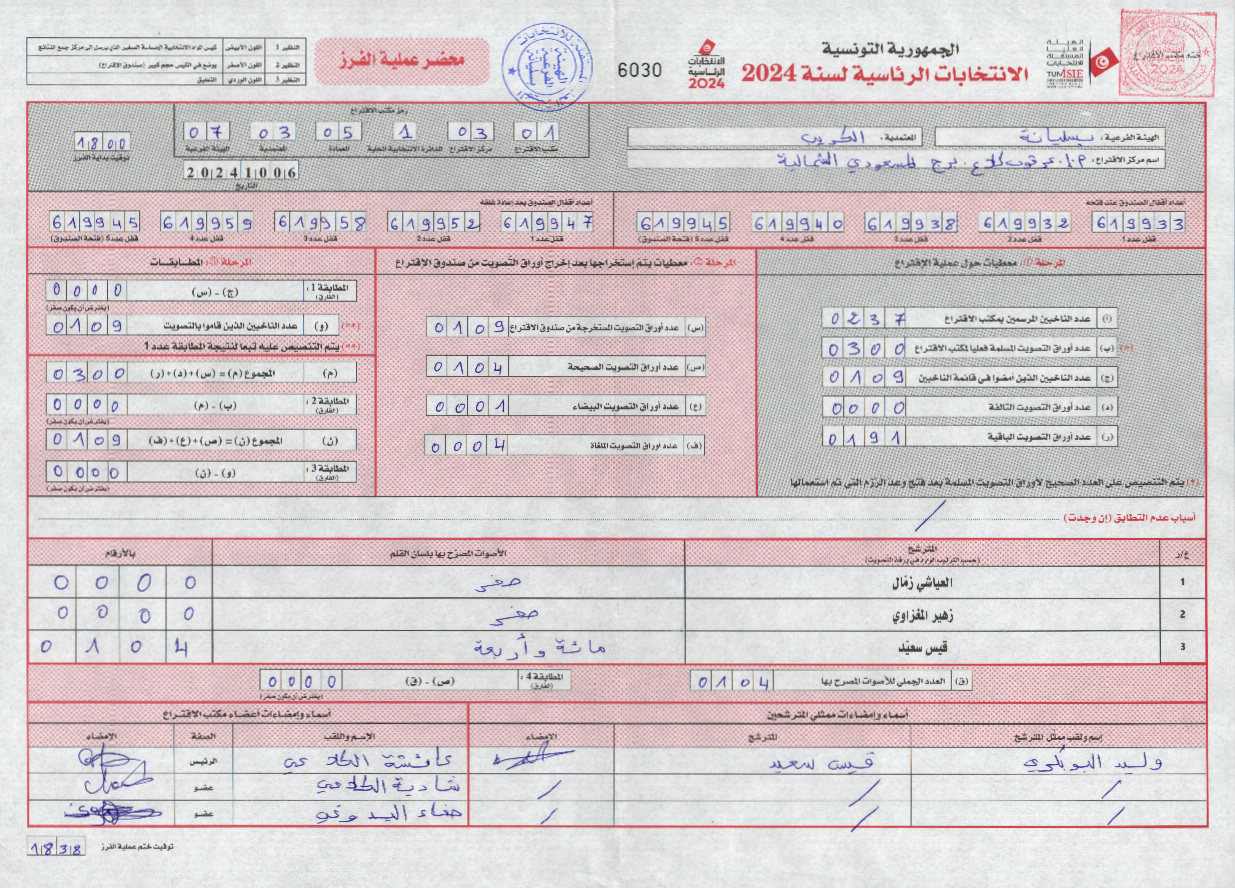 الجمهورية التونسية
الانتخابات الرئاسية لسنة 2024
ختم مكتب الاقتراع
الهيئة العليا المستقلة للانتخابات
TUNISIE
الانتخابات الرئاسية 2024
6030
محضر عملية الفرز
النظير 1 اللون الأبيض
النظير 2 اللون الأصفر يوضع في الكيس حجم كبير (صندوق الاقتراع)
النظير 3 اللون الوردي التعليق
الهيئة الفرعية: بسليانة المعتمدية: الكريب
اسم مركز الاقتراع: برج المسعودي الشمالية
رمز مكتب الاقتراع
01 03 1 05 03 07
مكتب الاقتراع مركز الاقتراع الدائرة الانتخابية المحلية العمادة المعتمدية الهيئة الفرعية
20241006
التاريخ
1800
توقيت بداية الفرز
أعداد أقفال الصندوق عند فتحه
619933 619932 619938 619940 619945
قفل عدد 1 قفل عدد 2 قفل عدد 3 قفل عدد 4 قفل عدد 5 (فتحة الصندوق)
أعداد أقفال الصندوق بعد إعادة غلقه
619947 619952 619958 619959 619945
قفل عدد 1 قفل عدد 2 قفل عدد 3 قفل عدد 4 قفل عدد 5 (فتحة الصندوق)
المرحلة 1: معطيات حول عملية الاقتراع
(أ) عدد الناخبين المرسمين بمكتب الاقتراع 0237
(*) (ب) عدد أوراق التصويت المسلمة فعليا لمكتب الاقتراع 0300
(ج) عدد الناخبين الذين أمضوا في قائمة الناخبين 0109
(د) عدد أوراق التصويت التالفة 0000
(ر) عدد أوراق التصويت الباقية 0191
(*) يتم التنصيص على العدد الصحيح لأوراق التصويت المسلمة بعد فتح وعد الرزم التي تم استعمالها
المرحلة 2: معطيات يتم إستخراجها بعد إخراج أوراق التصويت من صندوق الاقتراع
(س) عدد أوراق التصويت المستخرجة من صندوق الاقتراع 0109
(ص) عدد أوراق التصويت الصحيحة 0104
(ع) عدد أوراق التصويت البيضاء 0001
(ف) عدد أوراق التصويت الملغاة 0004
المرحلة 3: المطابقات
المطابقة 1: (الفارق) (ج) - (س) 0000
(يفترض أن يكون صفر)
(**) (و) عدد الناخبين الذين قاموا بالتصويت 0109
(**) يتم التنصيص عليه تبعا لنتيجة المطابقة عدد 1
(م) المجموع (م) = (س)+(د)+(ر) 0300
المطابقة 2: (الفارق) (ب) - (م) 0000
(يفترض أن يكون صفر)
(ن) المجموع (ن) = (ص)+(ع)+(ف) 0109
المطابقة 3: (الفارق) (و) - (ن) 0000
(يفترض أن يكون صفر)
أسباب عدم التطابق (إن وجدت) /
ع/ر المترشح الأصوات المصرح بها بلسان القلم بالأرقام
(حسب الترتيب الوارد في ورقة التصويت)
1 العياشي زمّال صفر 0000
2 زهير المغزاوي صفر 0000
3 قيس سعيّد مائة وأربعة 0104
(ق) العدد الجملي للأصوات المصرح بها 0104
المطابقة 4: (الفارق) (ص) - (ق) 0000
(يفترض أن يكون صفر)
أسماء وإمضاءات ممثلي المترشحين
إسم ولقب ممثل المترشح المترشح الإمضاء
وليد البوبكري قيس سعيد
/ / /
/ / /
أسماء وإمضاءات أعضاء مكتب الاقتراع
الإسم واللقب الصفة الإمضاء
عائشة الرئيس
شادية عضو
عضو
توقيت ختم عملية الفرز 1838